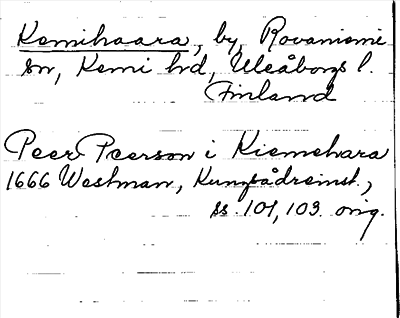 Kemihaara, by, Rovaniemi
sn, Kemi hd, Uleåborgs l.
Finland
Peer Peerson i Kiemehara
1666 Westman, Kungsådreinst.,
ss. 101, 103. orig.